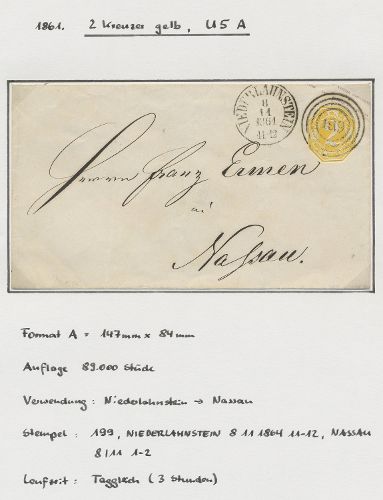 1861. 2 Kreuzer gelb, U5 A
NIEDERLAHNSTEIN
8
11
1864
11-12
2
Herrn Franz
in
Nassau.
Format A = 147mm x 84mm
Auflage 89.000 Stück
Verwendung: Niederlahnstein → Nassau
Stempel: 199, NIEDERLAHNSTEIN 8 11 1864 11-12, NASSAU
8/11 1-2
Laufzeit: Taggleich (3 Stunden)